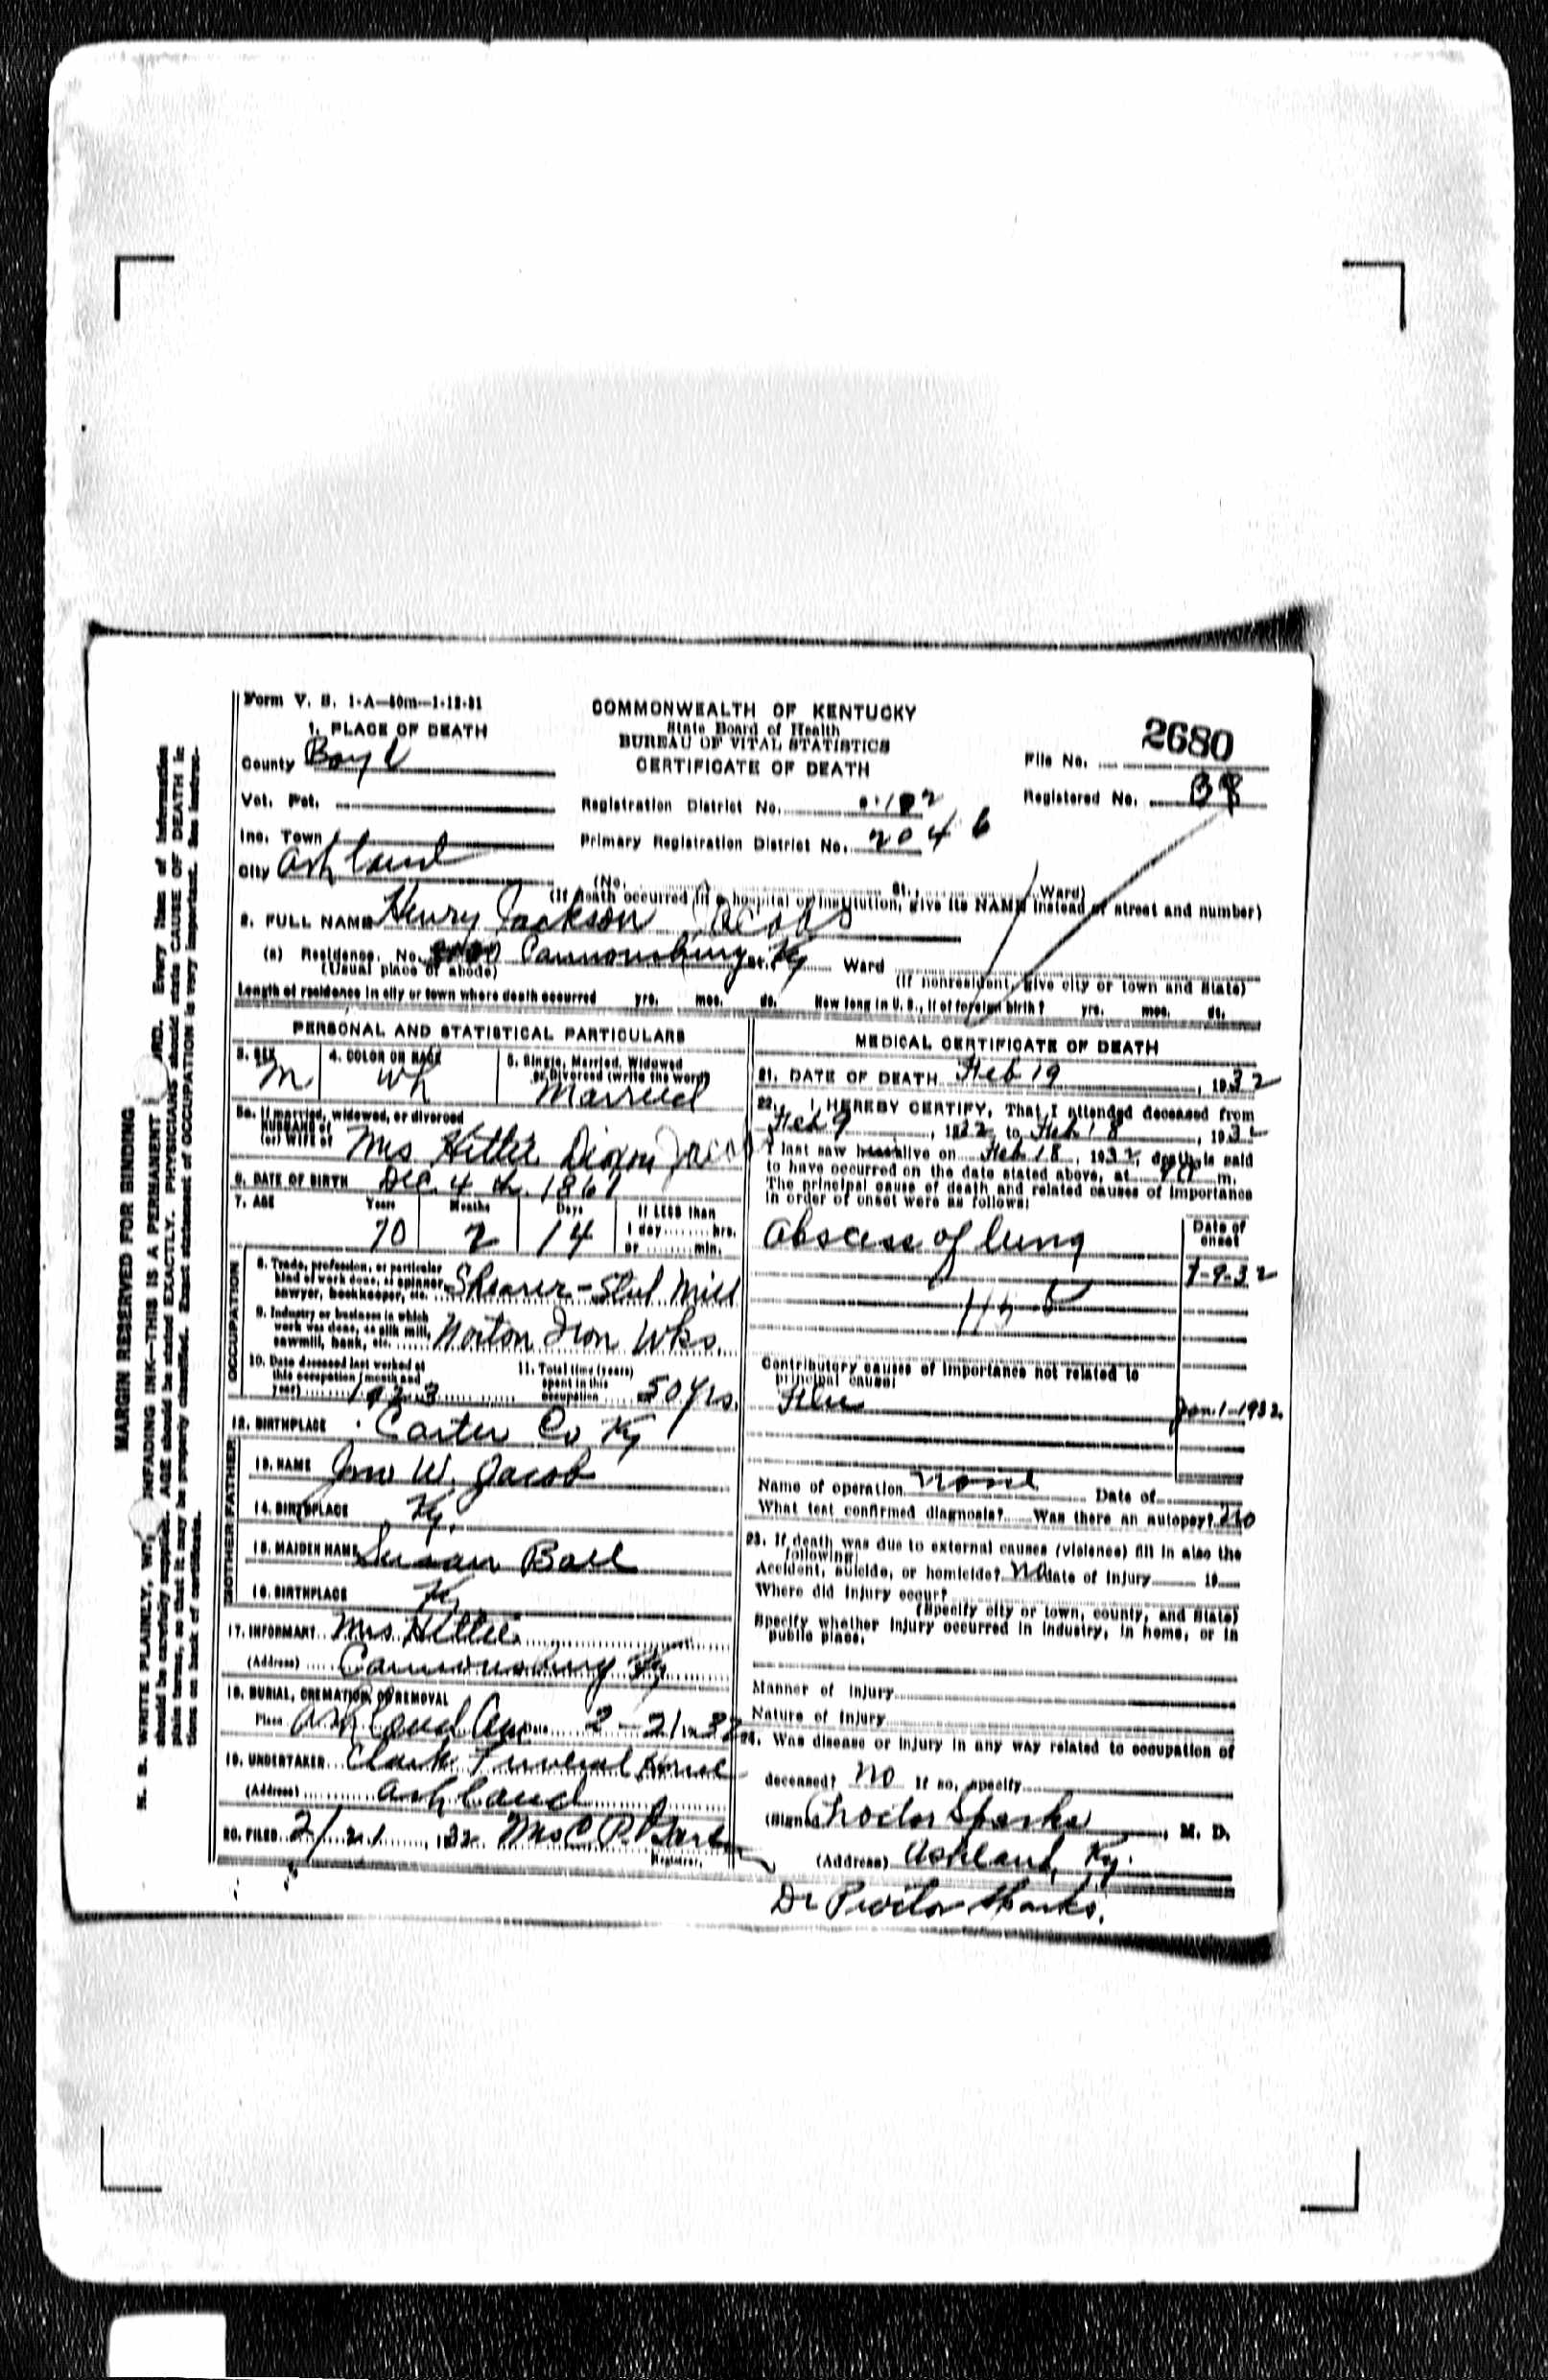 Form V. S. 1-A—50m—1-12-31
COMMONWEALTH OF KENTUCKY
State Board of Health
BUREAU OF VITAL STATISTICS
CERTIFICATE OF DEATH
File No. 2680
Registered No. 38
1. PLACE OF DEATH
County Boyd
Vot. Pct.
Inc. Town
City Ashland
Registration District No.
Primary Registration District No. 2046
(No. St., Ward)
(If death occurred in a hospital or institution, give its NAME instead of street and number)
2. FULL NAME Henry Jackson Jacobs
(a) Residence. No. Cannonsburg St., Ky Ward
(Usual place of abode) (If nonresident, give city or town and State)
Length of residence in city or town where death occurred yrs. mos. ds. How long in U. S., if of foreign birth? yrs. mos. ds.
PERSONAL AND STATISTICAL PARTICULARS
3. SEX M
4. COLOR OR RACE Wh
5. Single, Married, Widowed or Divorced (write the word) Married
5a. If married, widowed, or divorced
HUSBAND of
(or) WIFE of Mrs Hettie Dixon Jacobs
6. DATE OF BIRTH Dec. 4 th. 1861
7. AGE Years 70 Months 2 Days 14 If LESS than 1 day hrs. or min.
OCCUPATION
8. Trade, profession, or particular kind of work done, as spinner, sawyer, bookkeeper, etc. Shearer-Steel Mill
9. Industry or business in which work was done, as silk mill, sawmill, bank, etc. Norton Iron Wks.
10. Date deceased last worked at this occupation (month and year) 1923
11. Total time (years) spent in this occupation 50 yrs.
12. BIRTHPLACE Carter Co Ky
FATHER
13. NAME Jno W. Jacob
14. BIRTHPLACE Ky.
MOTHER
15. MAIDEN NAME Susan Ball
16. BIRTHPLACE Ky
17. INFORMANT Mrs. Hettie
(Address) Cannonsburg Ky
18. BURIAL, CREMATION, OR REMOVAL
Place Ashland Cem Date 2-21 1932
19. UNDERTAKER Clark Funeral Home
(Address) Ashland
20. FILED 2/21, 1932 Mrs C P
Registrar.
MEDICAL CERTIFICATE OF DEATH
21. DATE OF DEATH Feb 19, 1932
22. I HEREBY CERTIFY, That I attended deceased from
Feb 9, 1932 to Feb 18, 1932
I last saw h alive on Feb 18, 1932, death is said
to have occurred on the date stated above, at m.
The principal cause of death and related causes of importance
in order of onset were as follows:
Date of onset
Abscess of lung
-9-32
Contributory causes of importance not related to
principal cause:
Flu Jan-1-1932
Name of operation none Date of
What test confirmed diagnosis? Was there an autopsy? no
23. If death was due to external causes (violence) fill in also the
following:
Accident, suicide, or homicide? No Date of injury 19
Where did injury occur?
(Specify city or town, county, and State)
Specify whether injury occurred in industry, in home, or in
public place.
Manner of injury
Nature of injury
24. Was disease or injury in any way related to occupation of
deceased? No If so, specify
(Signed) Proctor Sparks, M. D.
(Address) Ashland, Ky.
Dr Proctor Sparks.
MARGIN RESERVED FOR BINDING
N. B. WRITE PLAINLY, WITH UNFADING INK—THIS IS A PERMANENT RECORD. Every item of information
should be carefully supplied. AGE should be stated EXACTLY. PHYSICIANS should state CAUSE OF DEATH in
plain terms, so that it may be properly classified. Exact statement of OCCUPATION is very important. See instruc-
tions on back of certificate.